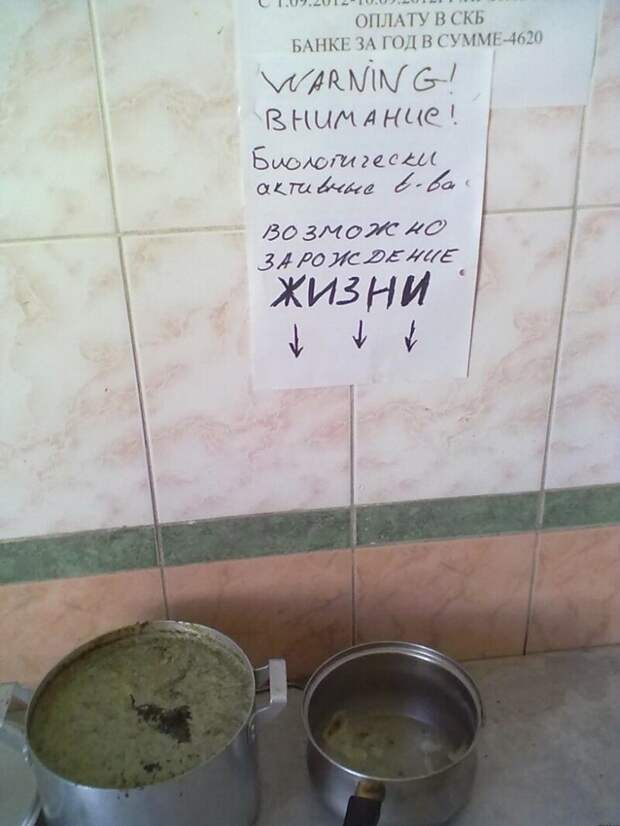 ОПЛАТУ В СКБ
БАНКЕ ЗА ГОД В СУММЕ-4620
WARNING!
ВНИМАНИЕ!
Биологически
активные в-ва
ВОЗМОЖНО
ЗАРОЖДЕНИЕ
ЖИЗНИ